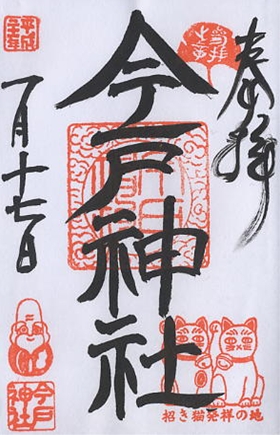 奉拝
今戸神社
一月十七日
招き猫発祥の地
今戸
神社